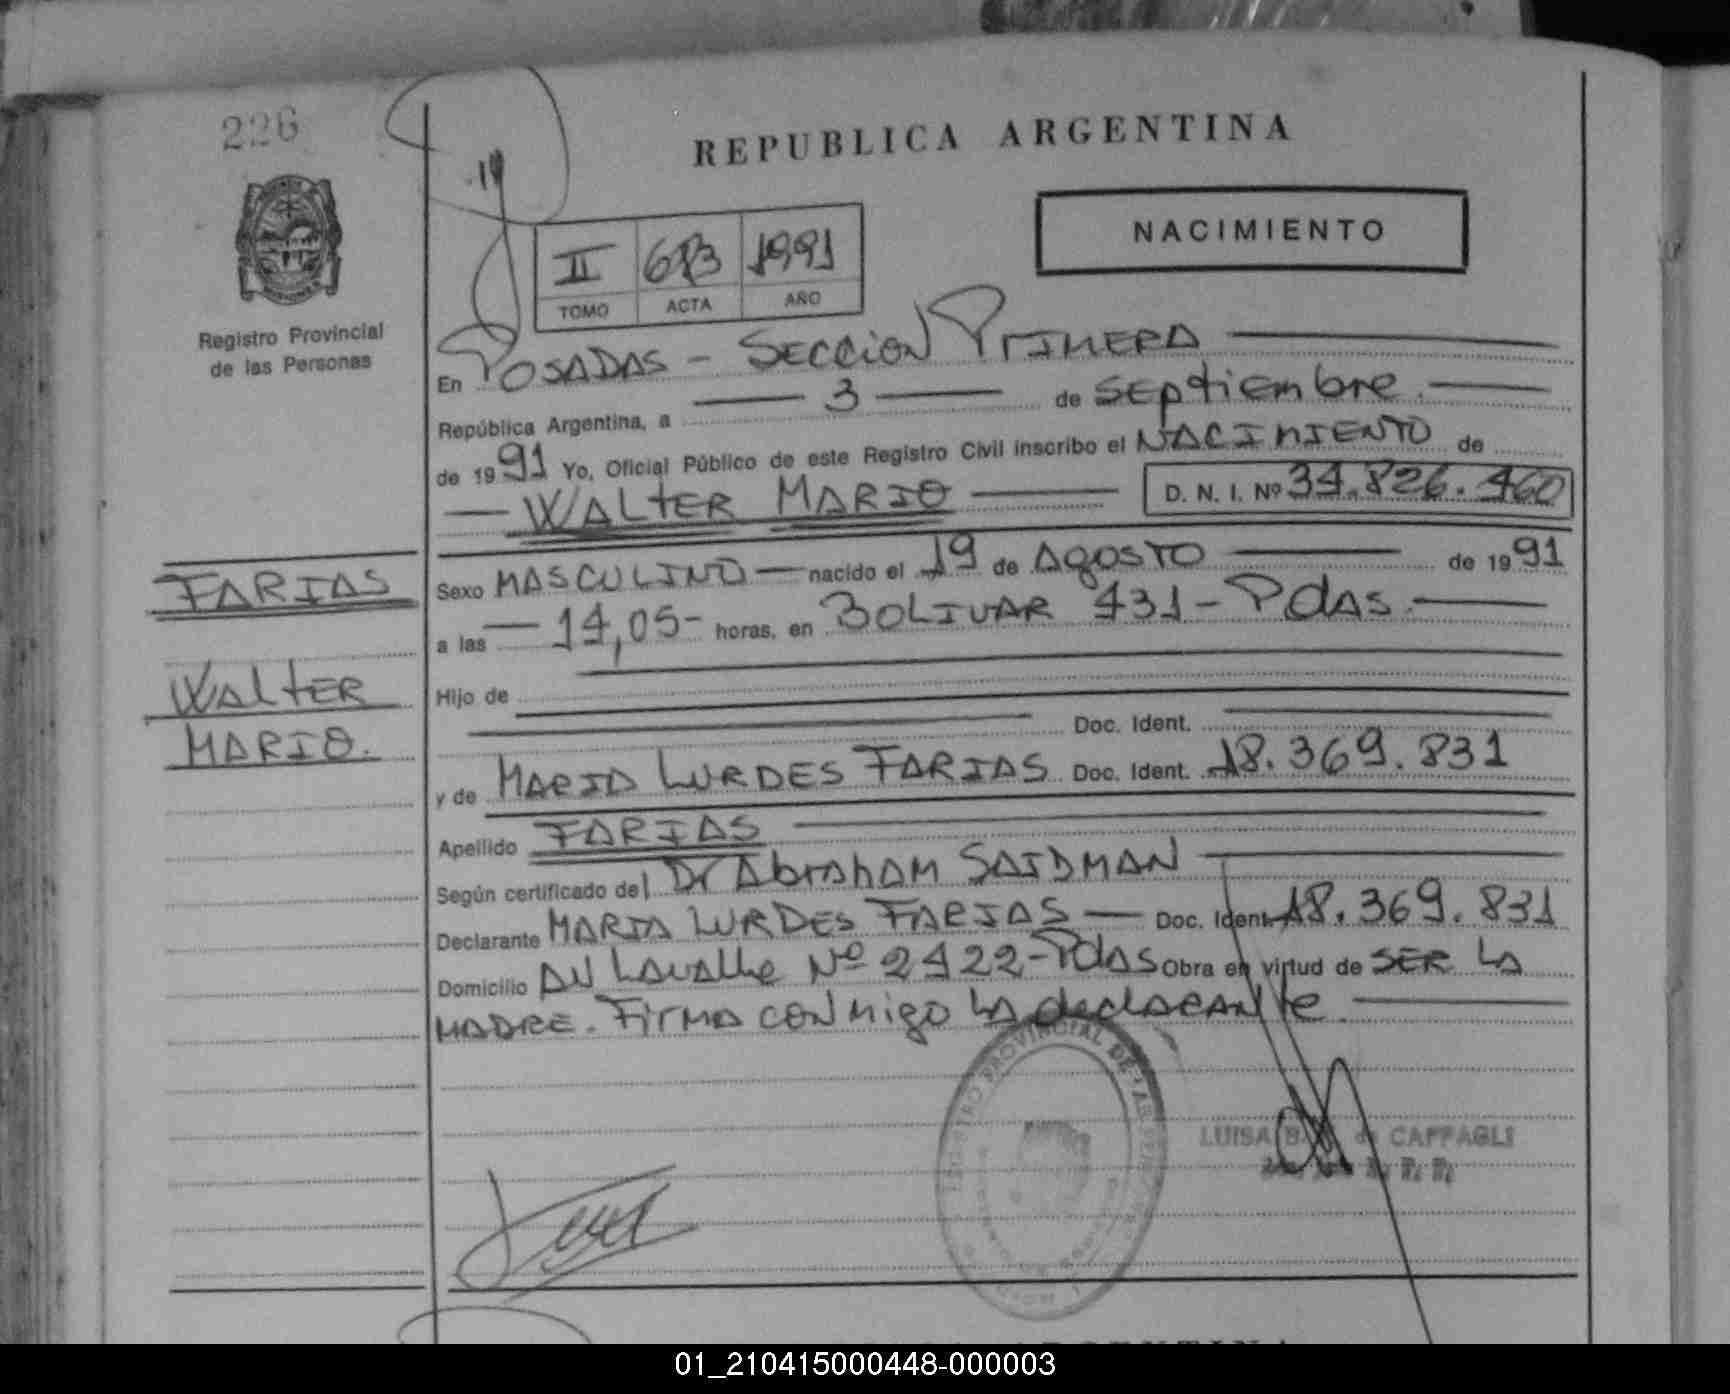 226
REPUBLICA ARGENTINA
NACIMIENTO
II 683 1991
TOMO ACTA AÑO
Registro Provincial
de las Personas
En POSADAS - SECCION PRIMERA
República Argentina, a 3 de septiembre.
de 1991 Yo, Oficial Público de este Registro Civil inscribo el NACIMIENTO de
WALTER MARIO D. N. I. Nº 34.826.460
FARIAS
WALTER
MARIO.
Sexo MASCULINO nacido el 19 de AGOSTO de 1991
a las 14,05- horas, en BOLIVAR 431 - Pdas.
Hijo de
Doc. Ident.
y de MARIA LURDES FARIAS Doc. Ident. 18.369.831
Apellido FARIAS
Según certificado del Dr Abraham SAIDMAN
Declarante MARIA LURDES FARIAS Doc. Ident. 18.369.831
Domicilio AV Lavalle Nº 2422-Pdas Obra en virtud de SER LA
MADRE. Firma conmigo la declarante.
REGISTRO PROVINCIAL DE LAS
LUISA B. de CAFFAGLI
01_210415000448-000003